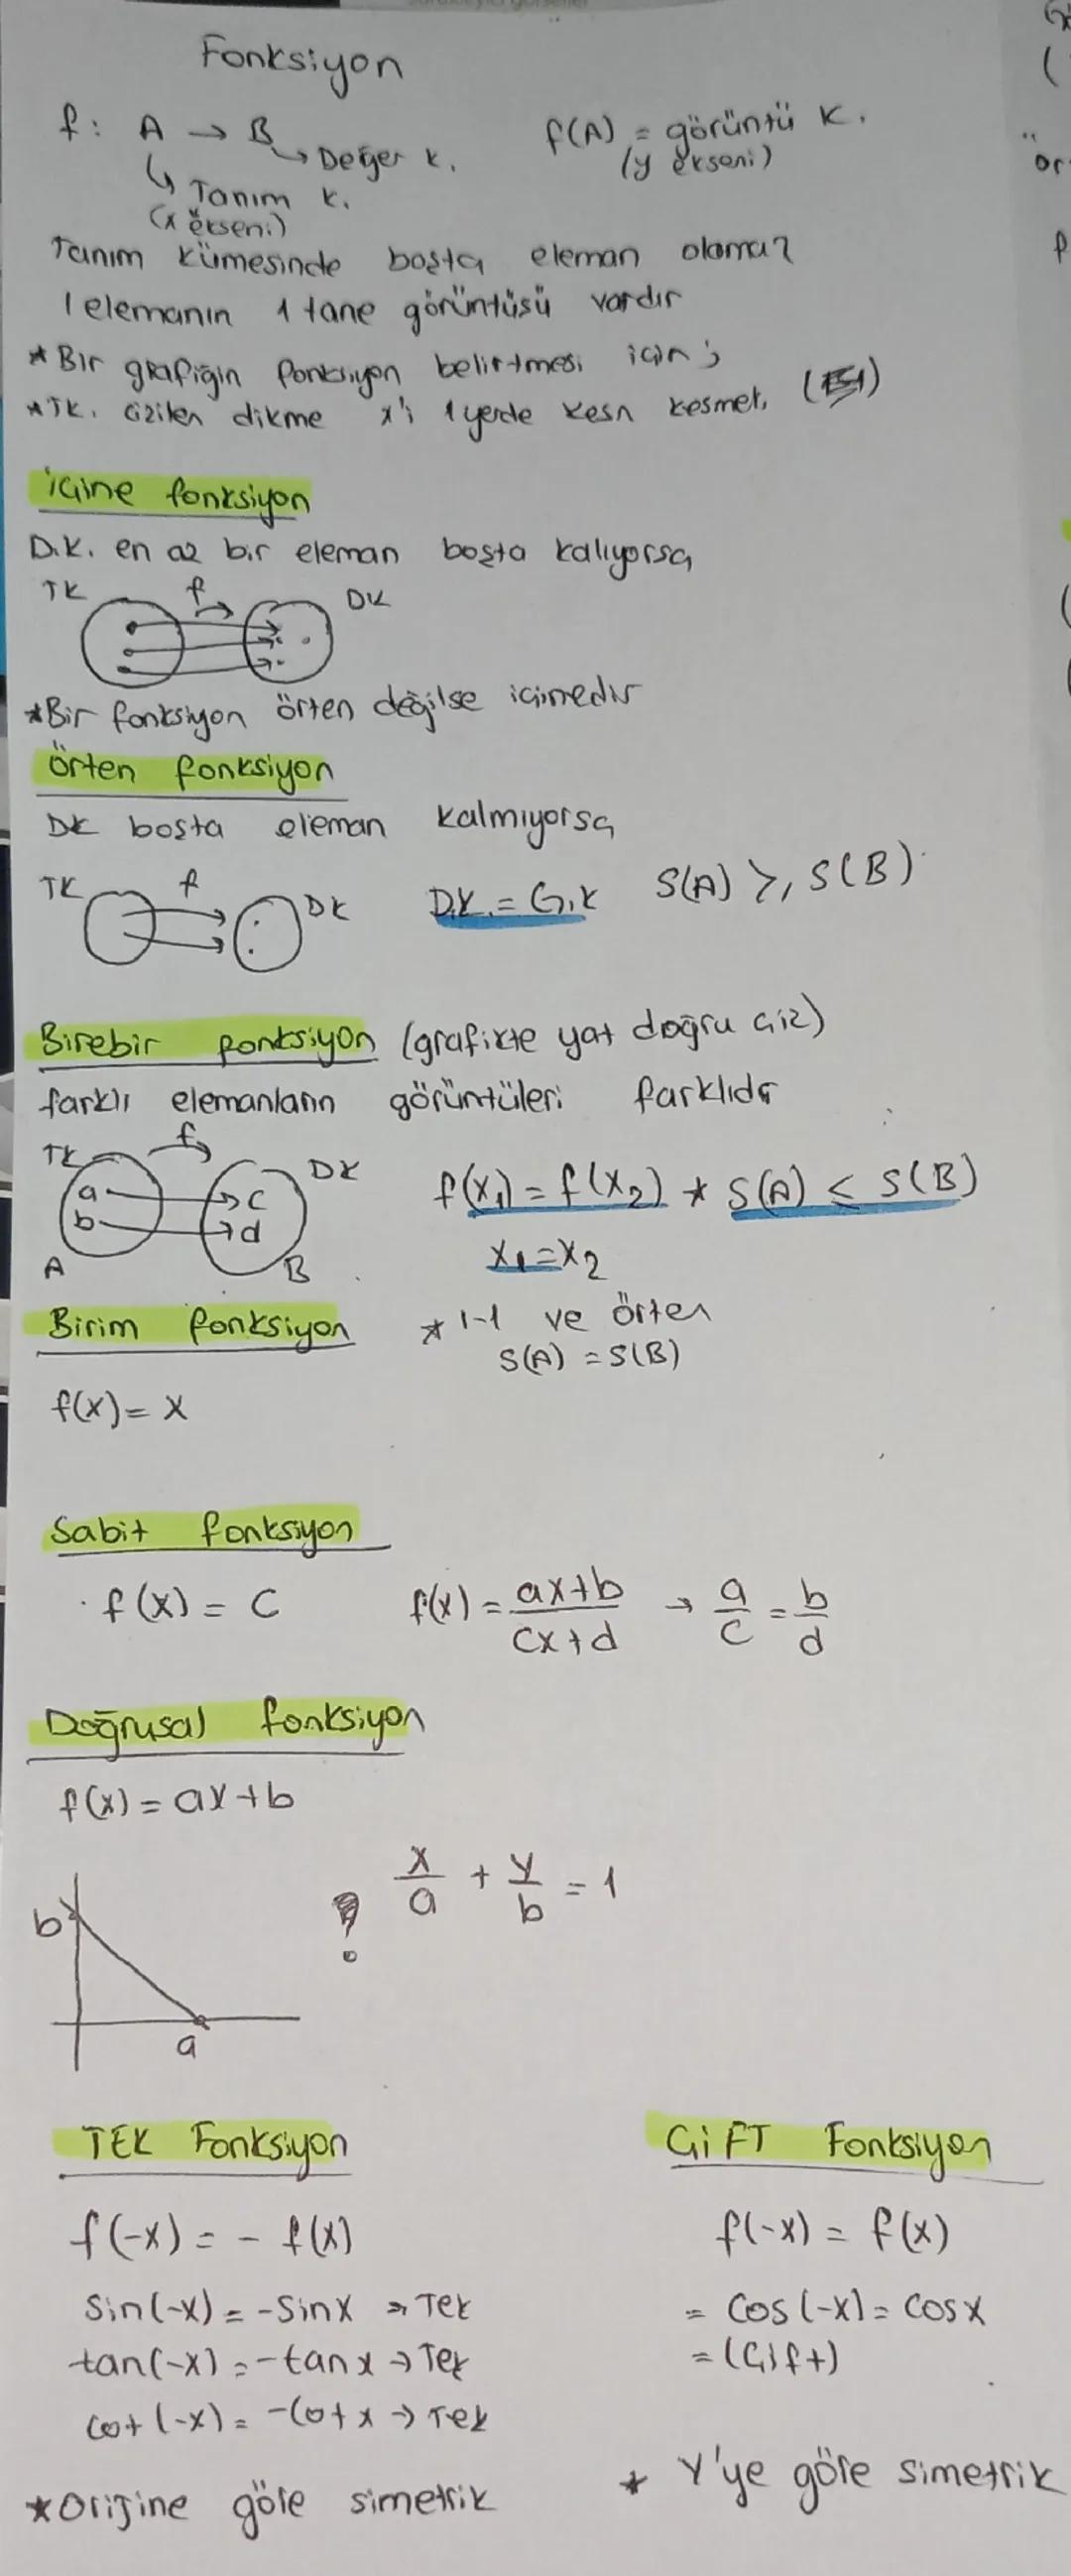 Fonksiyon
f: A → B
f(A) = görüntü K.
(y ekseni)
↳ Değer K.
↳ Tanım K.
(x ekseni)
Tanım kümesinde boşta eleman olamaz
1 elemanın 1 tane görüntüsü vardır
* Bir grafiğin fonksiyon belirtmesi için;
* TK. çizilen dikme x'i 1 yerde kesn kesmeli
içine fonksiyon
D.K. en az bir eleman boşta kalıyorsa
TK f DK
* Bir fonksiyon örten değilse içinedir
Örten fonksiyon
DK boşta eleman kalmıyorsa
TK f DK D.K. = G.K S(A) ≥ S(B)
Birebir fonksiyon (grafikte yat doğru çiz)
farklı elemanların görüntüleri farklıdr
TK f DK
a c
b d
A B
f(x₁) = f(x₂) * S(A) ≤ S(B)
x₁ = x₂
Birim fonksiyon * 1-1 ve örten
S(A) = S(B)
f(x) = x
Sabit fonksiyon
f(x) = c f(x) = ax+b / cx+d → a/c = b/d
Doğrusal fonksiyon
f(x) = ax+b
x/a + y/b = 1
b
a
TEK Fonksiyon
f(-x) = - f(x)
sin(-x) = -sinx → Tek
tan(-x) = -tanx → Tek
cot(-x) = -cotx → Tek
* Orijine göre simetrik
ÇİFT Fonksiyon
f(-x) = f(x)
= cos(-x) = cosx
= (Çift)
* Y'ye göre simetrik